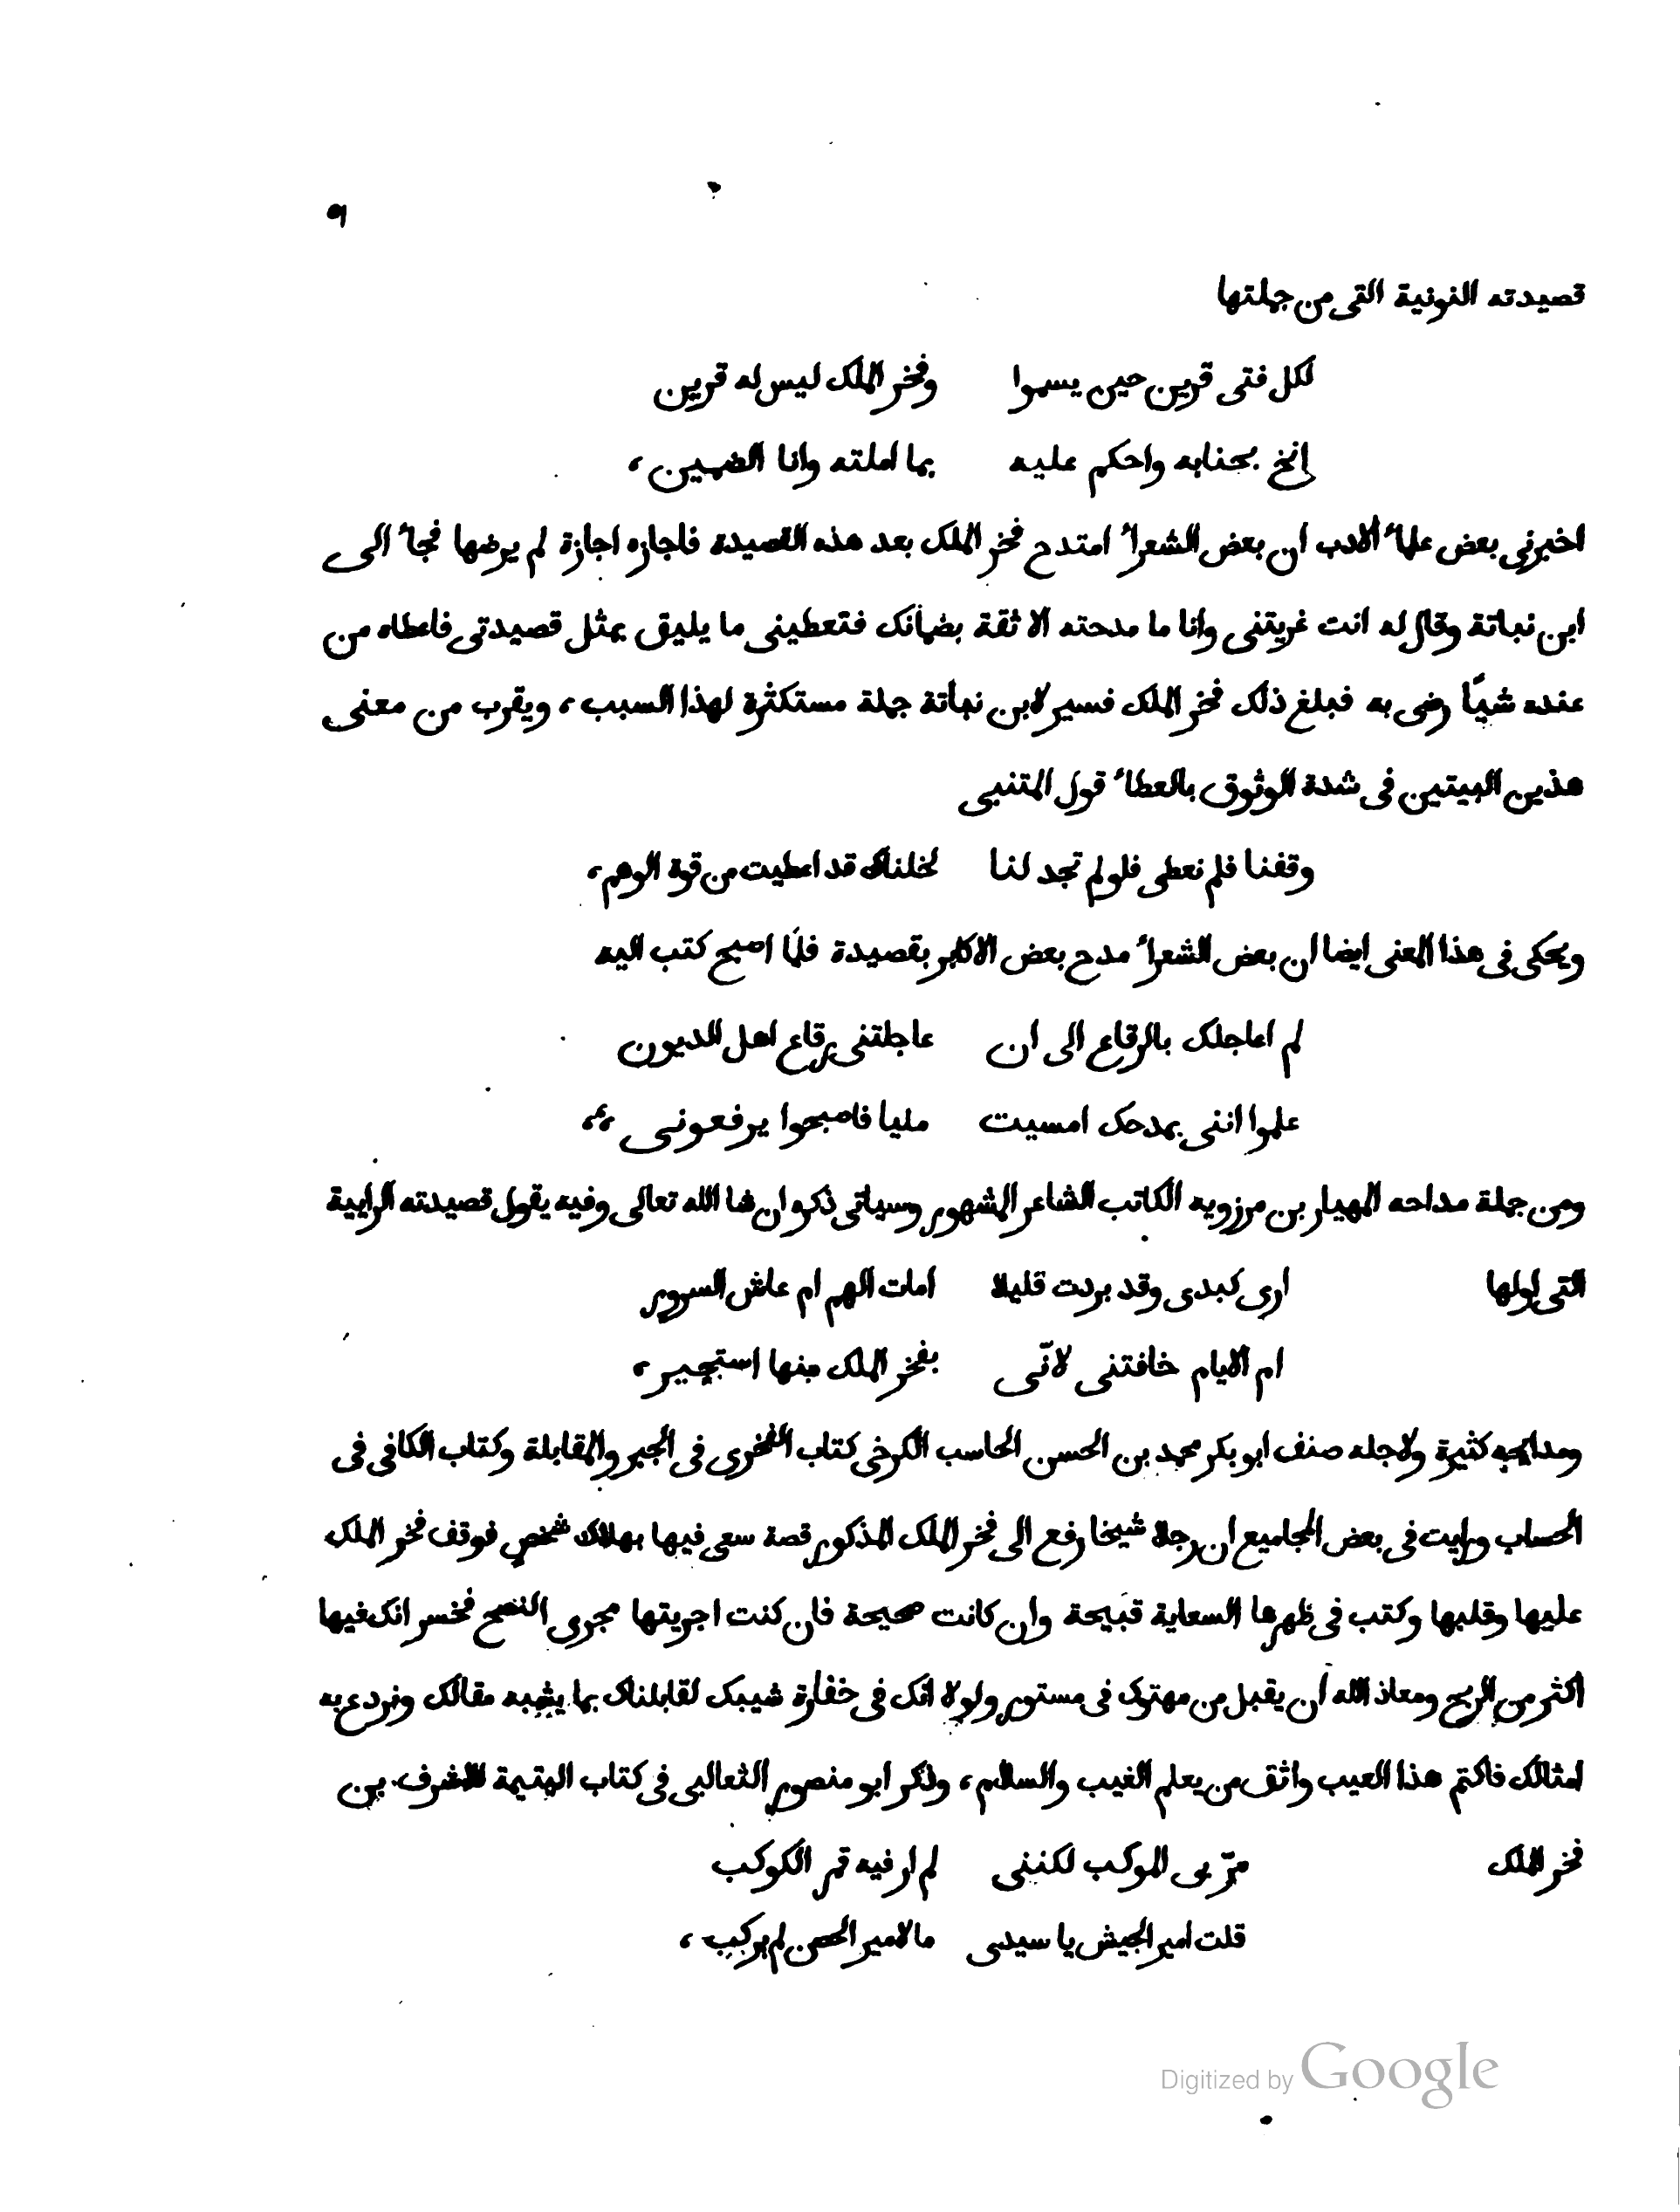 ٩
قصيدته النونية التى من جملتها
لكل فتى قرين حين يسموا وفخر الملك ليس له قرين
انخ بجنابه واحكم عليه بما املته وانا الضمين،
اخبرنى بعض علماء الادب ان بعض الشعراء امتدح فخر الملك بعد هذه القصيدة فاجازه اجازة لم يرضها فجاء الى
ابن نباتة وقال له انت غريتنى وانا ما مدحته الا ثقة بضمانك فتعطينى ما يليق بمثل قصيدتى فاعطاه من
عنده شيًا رضى به فبلغ ذلك فخر الملك فسير لابن نباتة جملة مستكثرة لهذا السبب، ويقرب من معنى
هذين البيتين فى شدة الوثوق بالعطاء قول المتنبى
وقفنا فلم نعطى فلو لم تجد لنا لخلناك قد اعطيت من قوة الوهم،
ويحكى فى هذا المعنى ايضا ان بعض الشعراء مدح بعض الاكابر بقصيدة فلمّا اصبح كتب اليه
لم اعاجلك بالرقاع الى ان عاجلتنى رقاع اهل الديون
علموا اننى بمدحك امسيت مليا فاصبحوا يرفعونى،
ومن جملة مداحه المهيار بن مرزويه الكاتب الشاعر المشهور وسياتى ذكره ان شا الله تعالى وفيه يقول قصيدته الرايية
التى اولها ارى كبدى وقد بردت قليلا امات الهم ام عاش السرور
ام الايام خافتنى لانّى بفخر الملك منها استجير،
ومدايحه كثيرة ولاجله صنف ابو بكر محمد بن الحسن الحاسب الكرخى كتاب الفخرى فى الجبر والمقابلة وكتاب الكافى فى
الحساب ورايت فى بعض المجاميع ان رجلا شيخا رفع الى فخر الملك المذكور قصة سعى فيها بهلاك شخص فوقف فخر الملك
عليها وقلبها وكتب فى ظهرها السعاية قبيحة وان كانت صحيحة فان كنت اجريتها مجرى النصح فخسرانك فيها
اكثر من الربح ومعاذ الله ان يقبل من مهتوك فى مستور ولولا انك فى خفارة شيبك لقابلناك بما يشبه مقالك ونردع به
امثالك فاكتم هذا العيب واتق من يعلم الغيب والسلام، وذكر ابو منصور الثعالبى فى كتاب اليتيمة للاشرف بن
فخر الملك مرّ بى الموكب لكننى لم ار فيه قمر الكوكب
قلت امير الجيش يا سيدى ما لامير الحسن لم يركب،
Digitized by Google